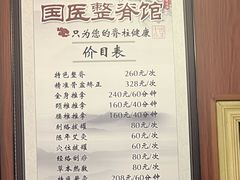 国医整脊馆
只为您的脊柱健康
价目表
特色整脊 260元/次
精准骨盆矫正 328元/次
全身推拿 240元/60分钟
颈椎推拿 160元/40分钟
腰椎推拿 160元/40分钟
刮痧拔罐 80元/次
陈年艾灸 60元/次
穴位拔罐 60元/次
经络刮痧 80元/次
草本热敷 80元/次
208元/60分钟